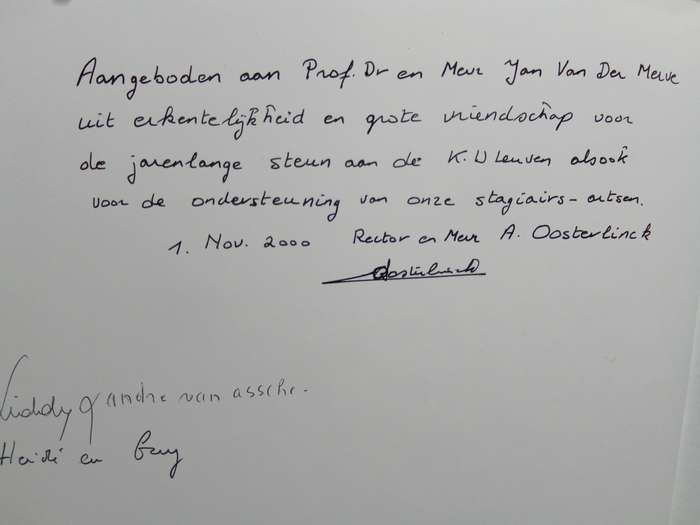 Aangeboden aan Prof. Dr en Mevr Jan Van Der Merwe
uit erkentelijkheid en grote vriendschap voor
de jarenlange steun aan de K.U Leuven alsook
voor de ondersteuning van onze stagiairs-artsen.
1. Nov. 2000 Rector en Mevr A. Oosterlinck
Oosterlinck
Liddy & andre van assche.
Heidi en Guy